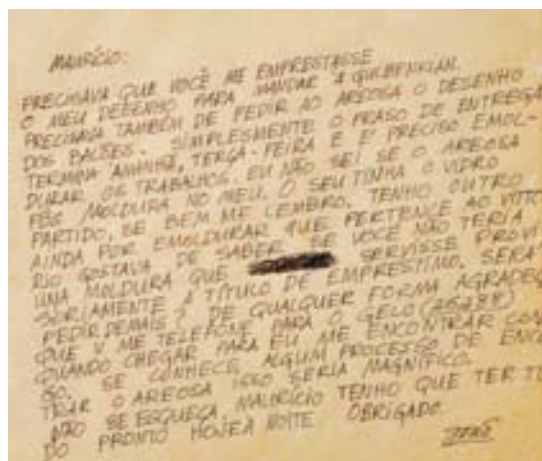 MAURÍCIO:
PRECISAVA QUE VOCÊ ME EMPRESTASSE
O MEU DESENHO PARA MANDAR À GULBENKIAN.
PRECISAVA TAMBÉM DE PEDIR AO AREOSA O DESENHO
DOS BALÕES. SIMPLESMENTE O PRASO DE ENTREGA
TERMINA AMANHÃ, TERÇA-FEIRA E É PRECISO EMOL-
DURAR OS TRABALHOS. EU NÃO SEI SE O AREOSA
PÔS MOLDURA NO MEU. O SEU TINHA O VIDRO
PARTIDO, SE BEM ME LEMBRO. TENHO OUTRO
AINDA POR EMOLDURAR QUE PERTENCE AO VITO
RIO GOSTAVA DE SABER SE VOCÊ NÃO TERIA
UMA MOLDURA QUE SERVISSE PROVI
SORIAMENTE A TÍTULO DE EMPRESTIMO. SERÁ
PEDIR DEMAIS? DE QUALQUER FORMA AGRADEÇ
QUE V. ME TELEFONE PARA O GELO
QUANDO CHEGAR PARA EU ME ENCONTRAR CON
SO. SE CONHECE ALGUM PROCESSO DE ENCO
TRAR O AREOSA ISSO SERIA MAGNÍFICO.
NÃO SE ESQUEÇA, MAURÍCIO TENHO QUE TER TU
DO PRONTO HOJE À NOITE OBRIGADO